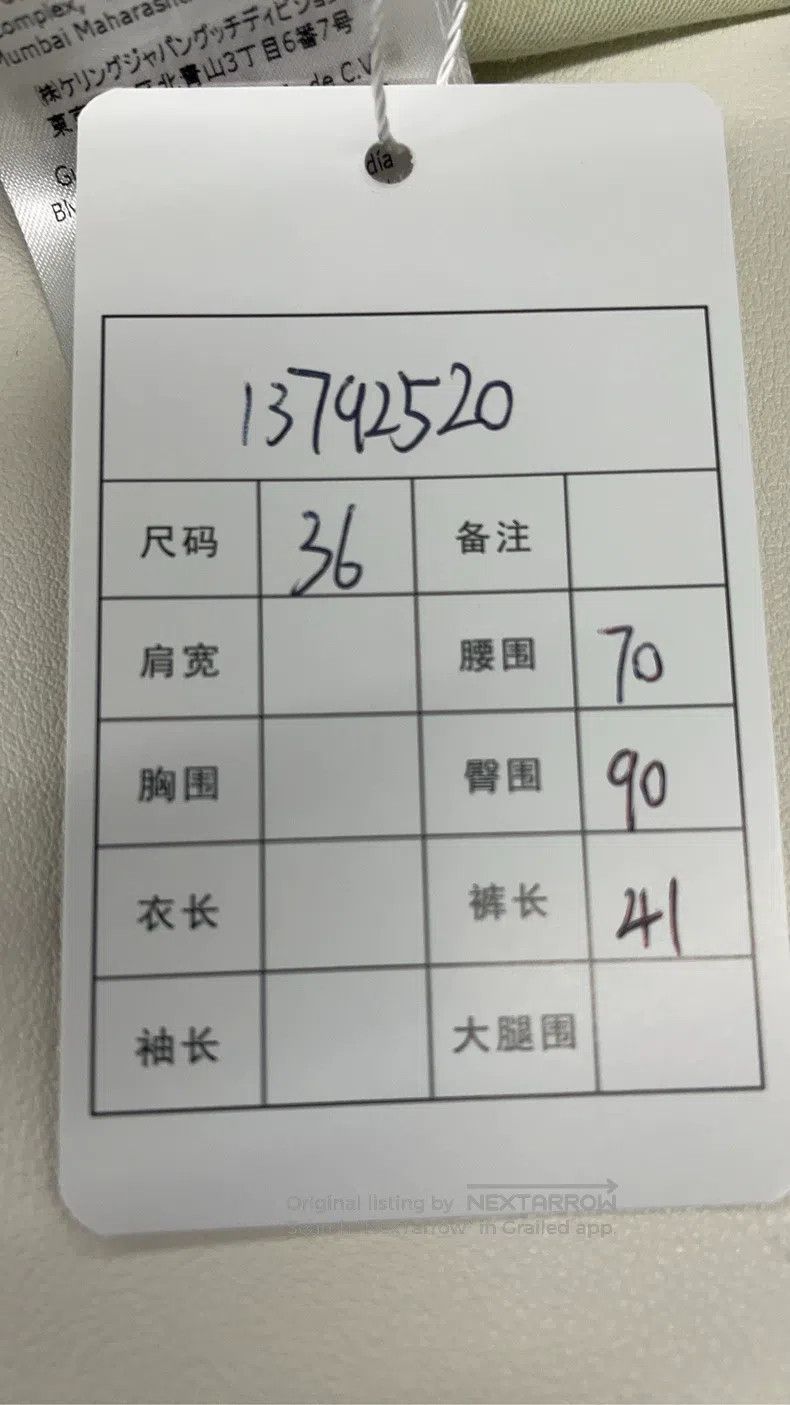 omplex,
Mumbai Maharash
㈱ケリングジャパングッチディビジョン
北青山3丁目6番7号
de C.V.
día
13792520
尺码 36 备注
肩宽 腰围 70
胸围 臀围 90
衣长 裤长 41
袖长 大腿围
Original listing by NEXTARROW
Search "Nextarrow" in Grailed app